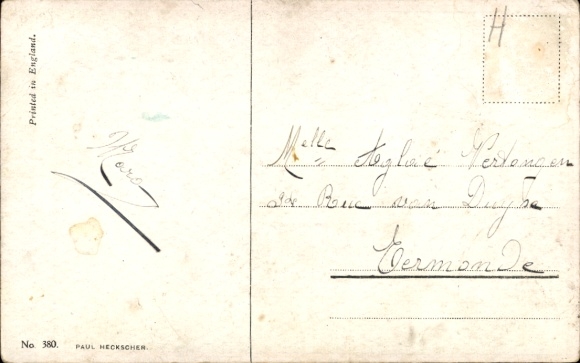 Printed in England.
H
Maro
Melle Aglaé Vertongen
Rue van Duyse
Termonde
No. 380. PAUL HECKSCHER.